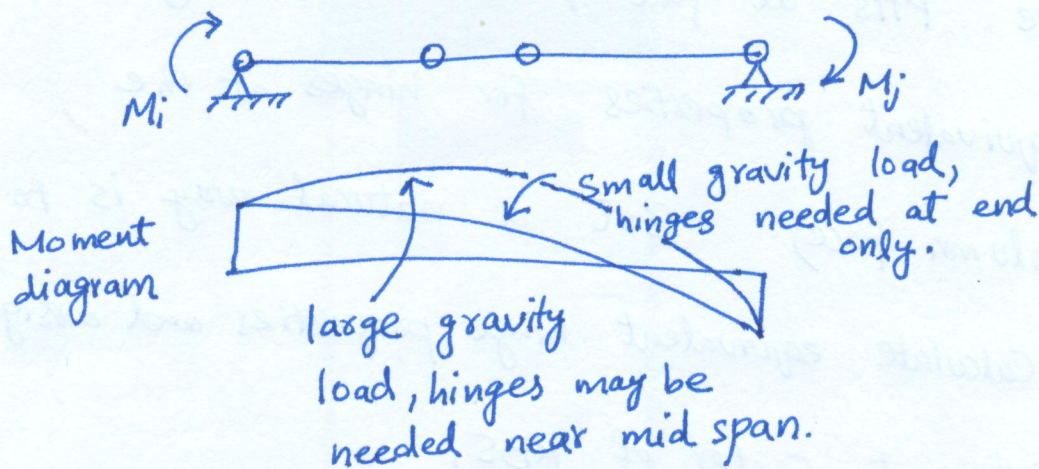 Mi
Mj
Moment
diagram
small gravity load,
hinges needed at end
only.
large gravity
load, hinges may be
needed near mid span.